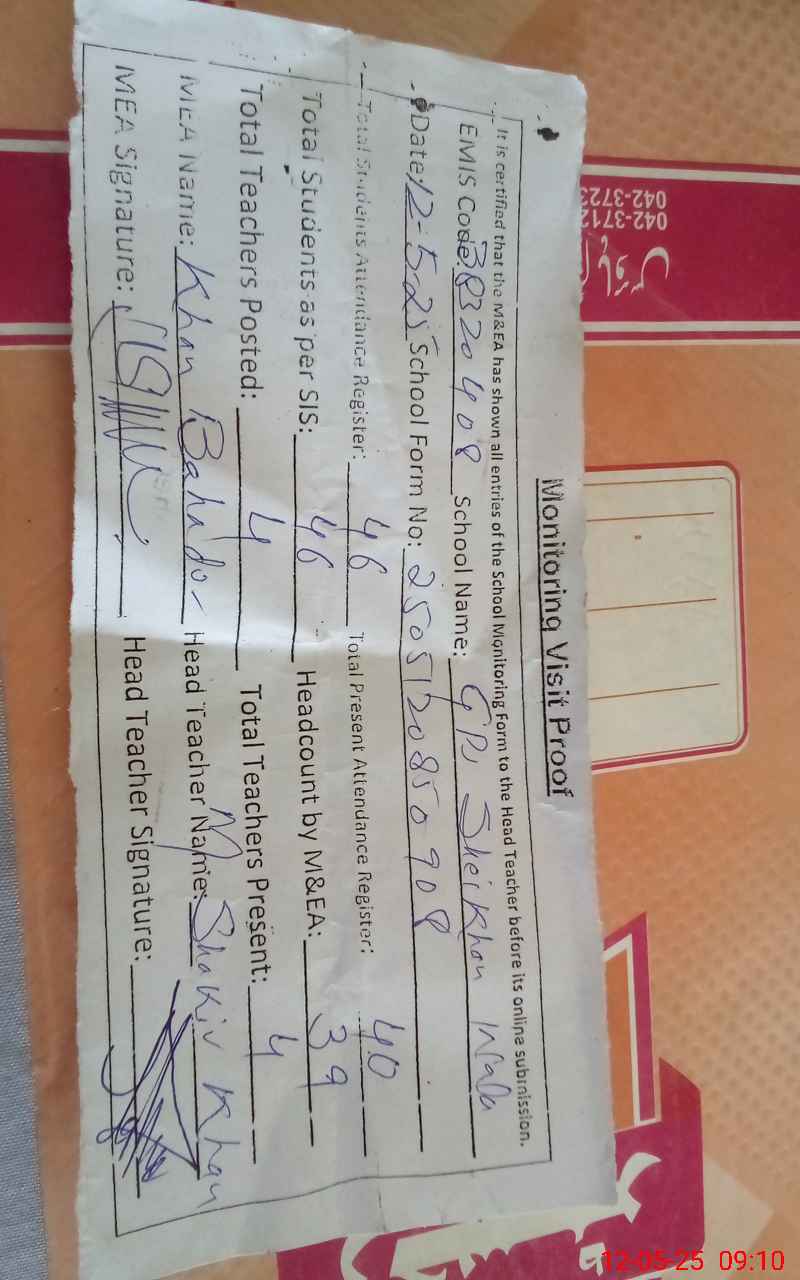 Monitoring Visit Proof
It is certified that the M&EA has shown all entries of the School Monitoring Form to the Head Teacher before its online submission.
EMIS Code: 38320408 School Name: GPS Sheikhan Wala
Date: 12-5-25 School Form No: 2505120850908
Total Students Attendance Register: 46 Total Present Attendance Register: 40
Total Students as per SIS: 46 Headcount by M&EA: 39
Total Teachers Posted: 4 Total Teachers Present: 4
MEA Name: Khan Bahador Head Teacher Name: M Shakir Khan
MEA Signature: Head Teacher Signature:
042-3712
042-3723
12-05-25 09:10